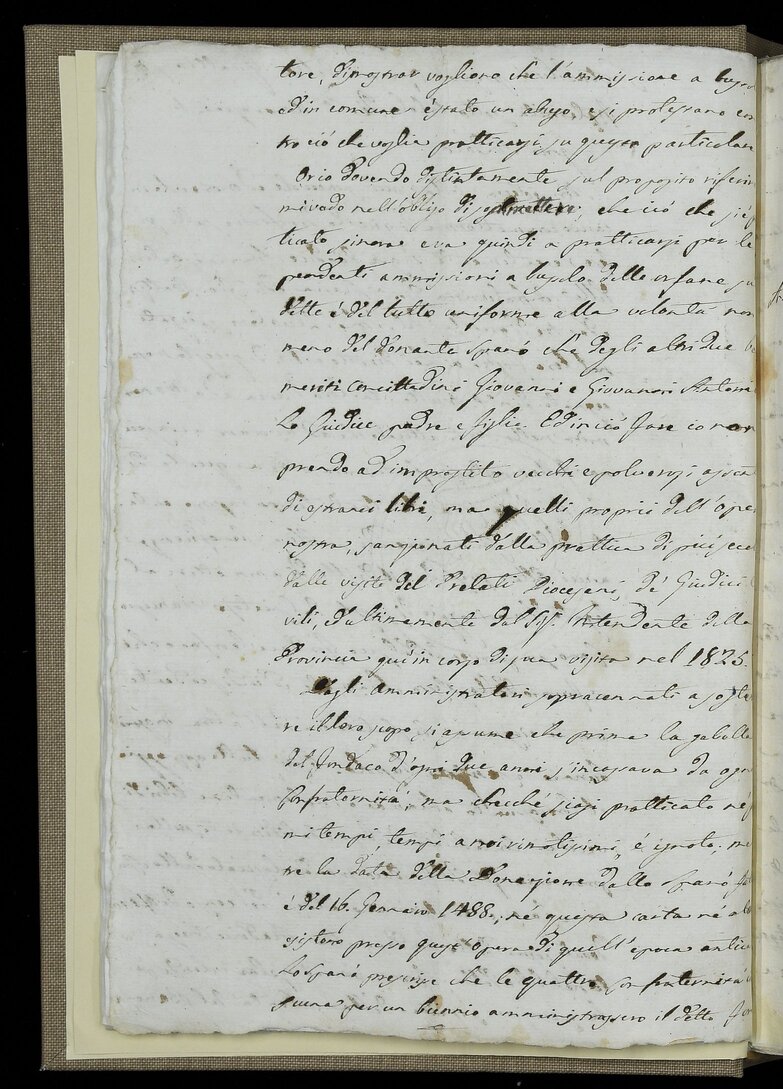 tore, dimostrar vogliono che l'ammissione a busso
ed in comune è stato un abuso, e si protestano con
tro ciò che voglia pratticarsi su questo particolare
Or io dovendo distintamente sul proposito riferir
mi vado nell'obligo di sottomettere, che ciò che si è p
ticato sinora e va quindi a pratticarsi per le
pendenti ammissioni a bussolo delle orfane su
dette è del tutto uniforme alla volontà non
meno del donante Spanò che degli altri due be
meriti concittadini Giovanni e Giovanni Antoni
Lo Giudice padre e figlio. Ed in ciò fare io non
prendo ad imprestito vecchi e polverosi
di estranei libri, ma quelli proprii dell'Opera
nostra, sanzionati dalla prattica di più secoli
dalle visite del Prelati Diocesani, de' Giudici
vili, ed ultimamente dal Sig. Intendente della
Provincia qui in corso di sua visita nel 1825.
Dagli Amministratori sopracennati a soste
re il loro scopo, si assume che prima la gabella
del fondaco d'ogni due anni s'incassava da ogni
Confraternità, ma checché siasi pratticato ne
mi tempi, tempi a noi rimotissimi, è ignoto; me
re la data della Donazione dallo Spanò fat
è del 16. Gennaro 1488, né questa carta né al
esistono presso quest'opera di quell'epoca antica
Lo Spanò prescrisse che le quattro confraternità
scuna per un biennio amministrassero il detto fon